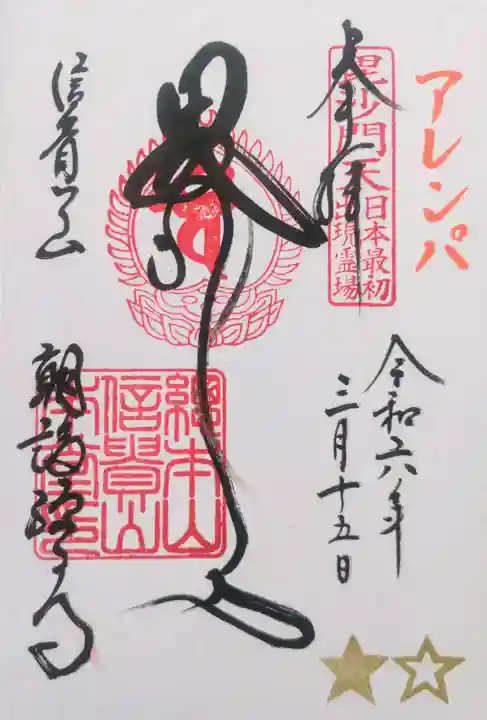 アレンパ
奉拝
毘沙門天日本最初出現霊場
令和六年
三月十五日
總本山信貴山
信貴山
朝護孫子寺